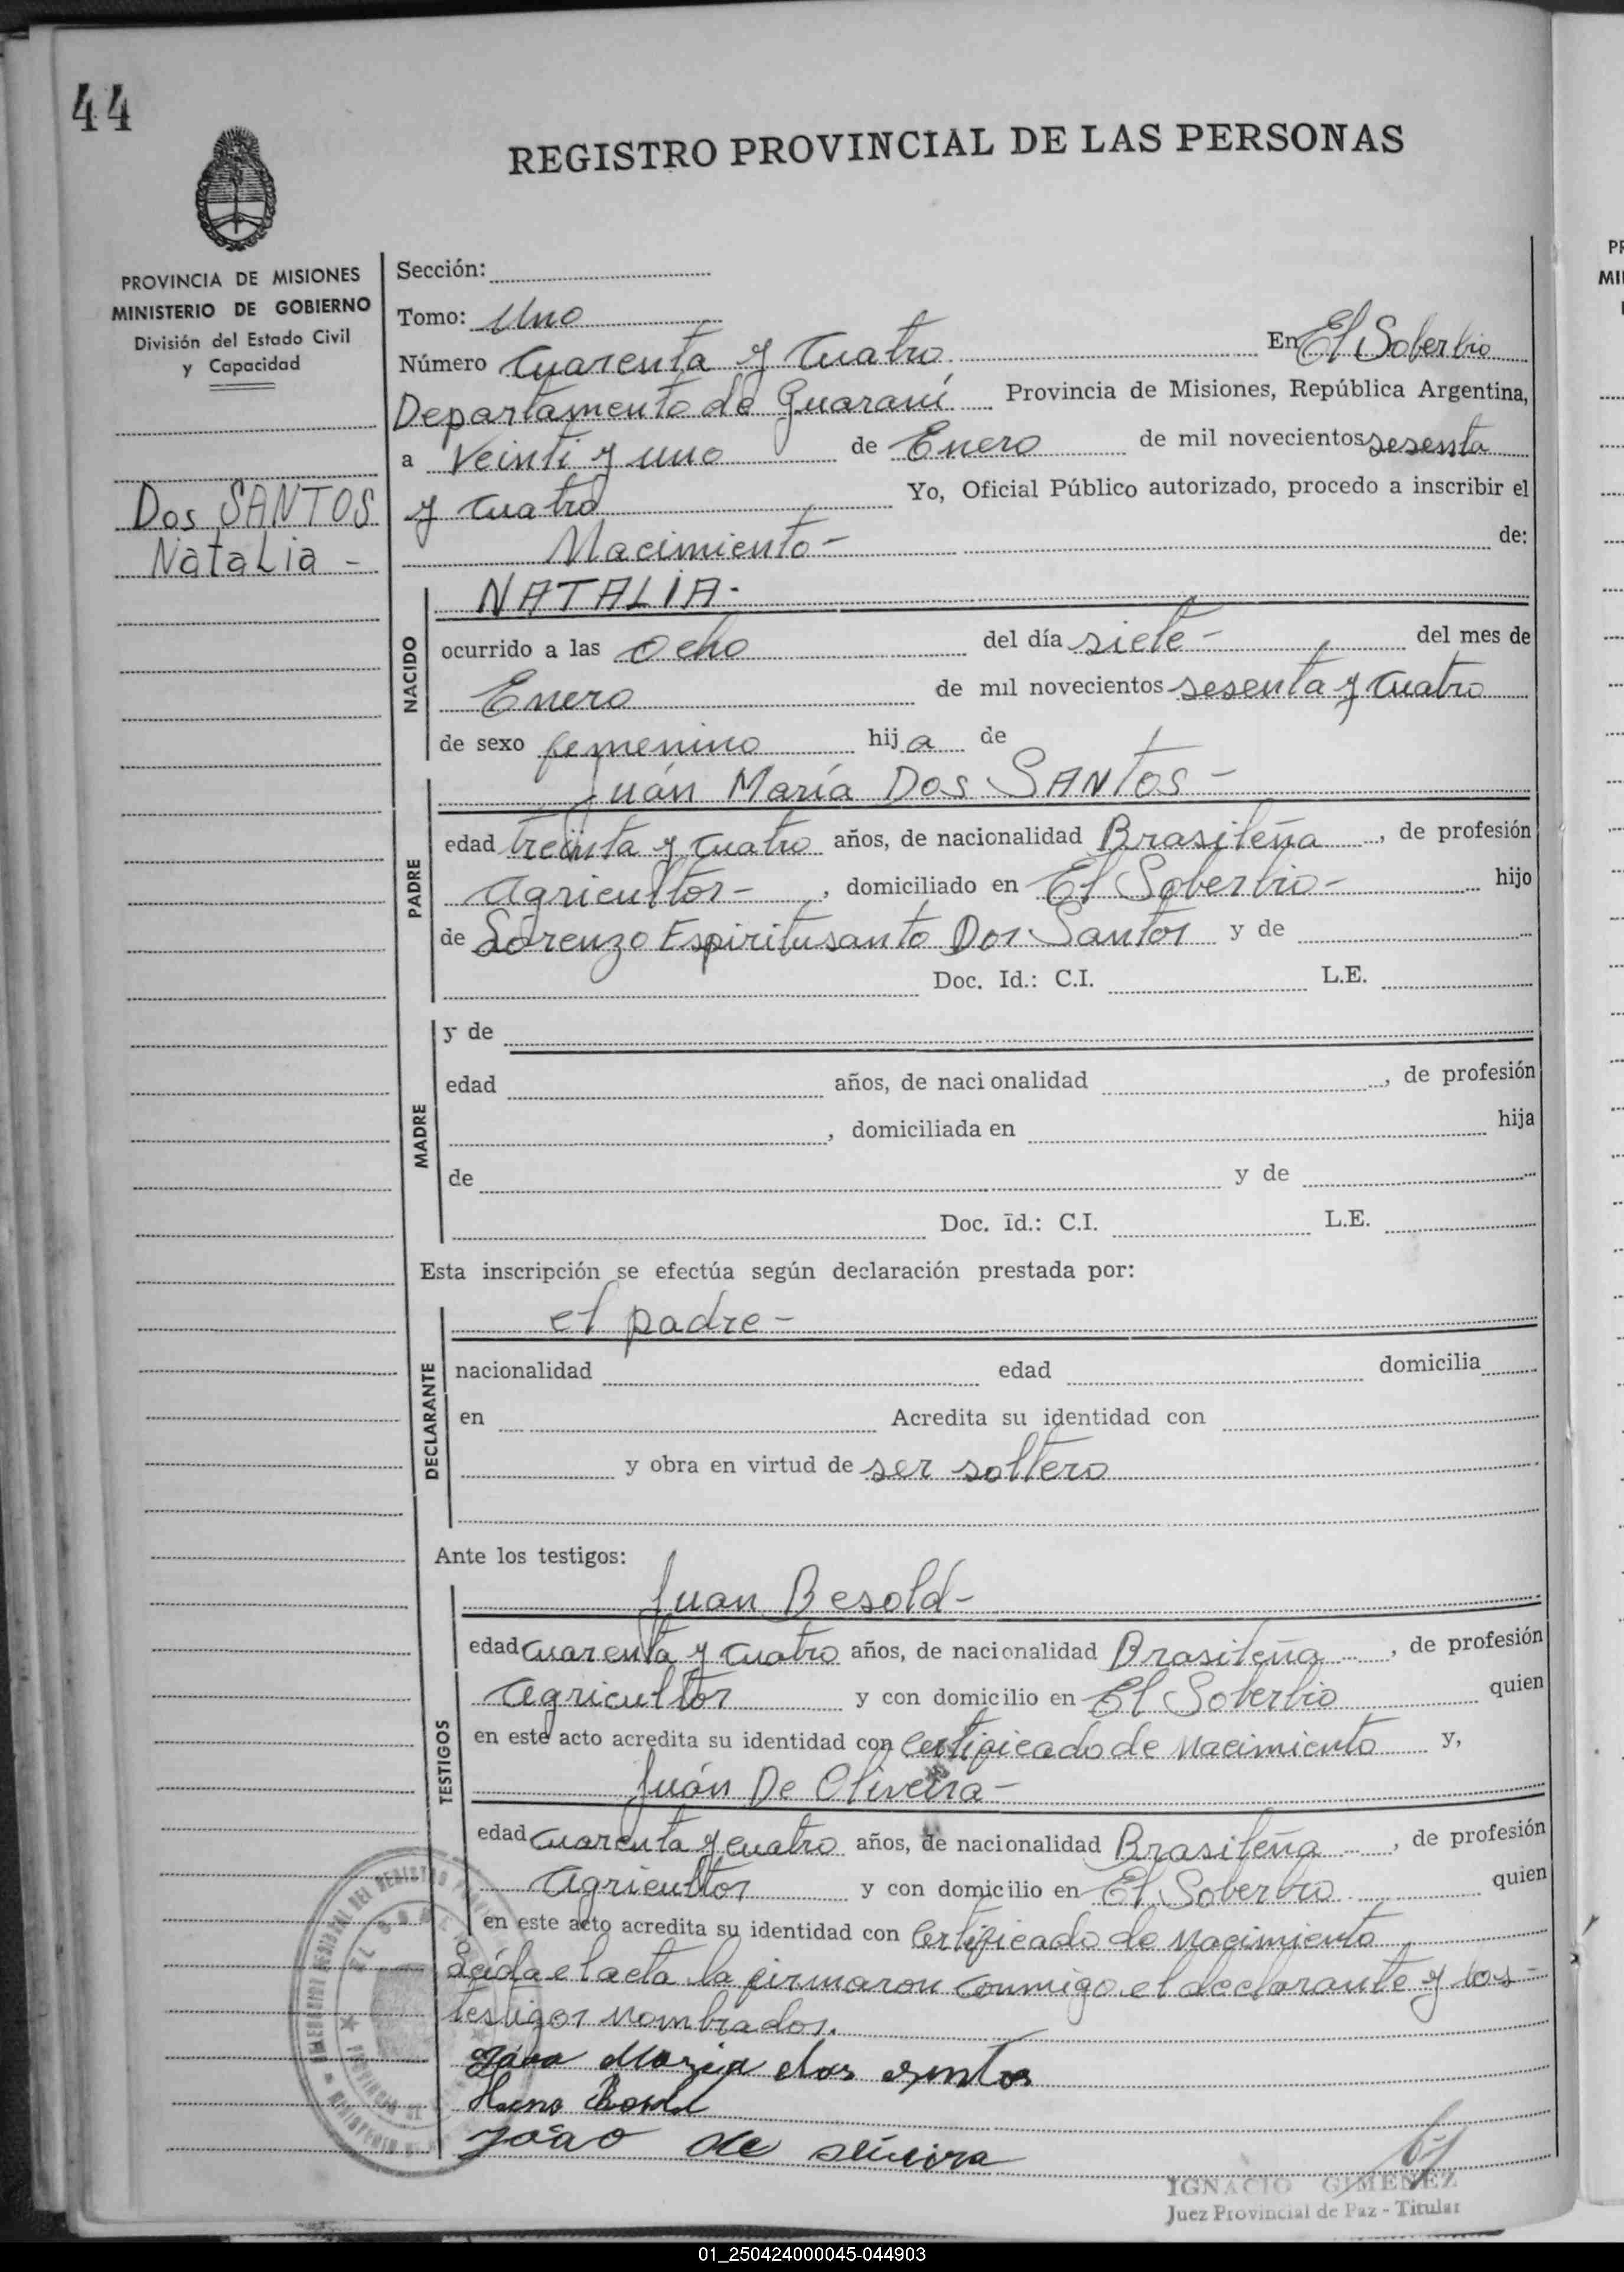 44
REGISTRO PROVINCIAL DE LAS PERSONAS
PROVINCIA DE MISIONES
MINISTERIO DE GOBIERNO
División del Estado Civil
y Capacidad
Dos SANTOS
NataLia -
Sección:
Tomo: Uno
Número Cuarenta y Cuatro En El Soberbio
Departamento de Guaraní Provincia de Misiones, República Argentina,
a Veinti y uno de Enero de mil novecientos sesenta
y cuatro Yo, Oficial Público autorizado, procedo a inscribir el
Nacimiento - de:
NACIDO
NATALIA -
ocurrido a las ocho del día siete - del mes de
Enero de mil novecientos sesenta y cuatro
de sexo femenino hija de
PADRE
Juán María Dos SANtos -
edad treinta y cuatro años, de nacionalidad Brasileña, de profesión
agricultor -, domiciliado en El Soberbio - hijo
de Lorenzo Espiritusanto Dos Santos y de
Doc. Id.: C.I. L.E.
MADRE
y de
edad años, de nacionalidad , de profesión
, domiciliada en hija
de y de
Doc. Id.: C.I. L.E.
Esta inscripción se efectúa según declaración prestada por:
DECLARANTE
el padre -
nacionalidad edad domicilia
en Acredita su identidad con
y obra en virtud de ser soltero
Ante los testigos:
TESTIGOS
Juan Besold -
edad cuarenta y cuatro años, de nacionalidad Brasileña, de profesión
agricultor y con domicilio en El Soberbio quien
en este acto acredita su identidad con certificado de nacimiento y,
Juán De Oliveira -
edad cuarenta y cuatro años, de nacionalidad Brasileña, de profesión
agricultor y con domicilio en El Soberbio quien
en este acto acredita su identidad con certificado de nacimiento
Leída el acta la firmaron conmigo el declarante y los -
testigos nombrados.
Maria dos
João de
IGNACIO GIMENEZ
Juez Provincial de Paz - Titular
01_250424000045-044903